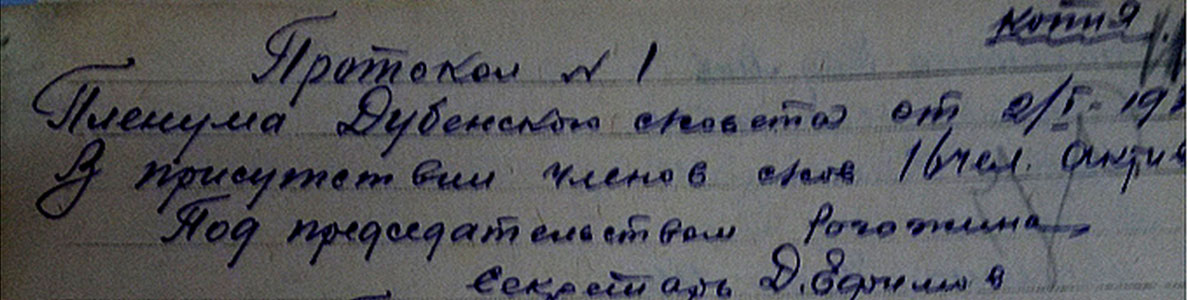 Копия
Протокол № 1
Пленума Дубенского с/совета от 2/I-19
В присутствии членов с/сов 16 чел. Актив
Под председательством Рогожина
Секретарь Д. Ефимов